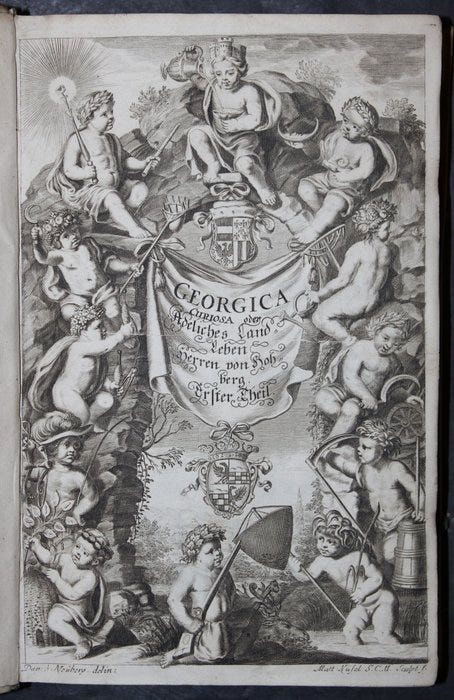 GEORGICA
CURIOSA oder
Adeliches Land
Leben
Herren von Hoh
berg
Erster Theil
Dan: Neuberg delin:
Matt Küsel S.C.M. Sculpt: